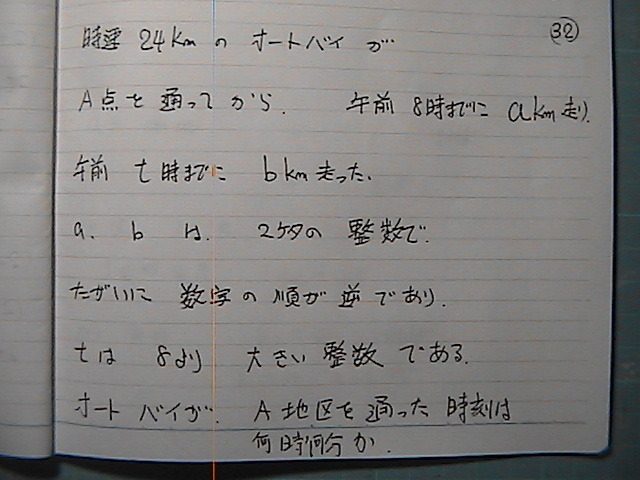 時速 24km の オートバイ が
㉜
A点を 通って から. 午前 8時までに akm走り.
午前 t時までに bkm走った.
a. b は. 2ケタの 整数で.
たがいに 数字の 順が 逆であり.
tは 8より 大きい整数 である.
オート バイが. A地区を通った 時刻は
何時何分か.